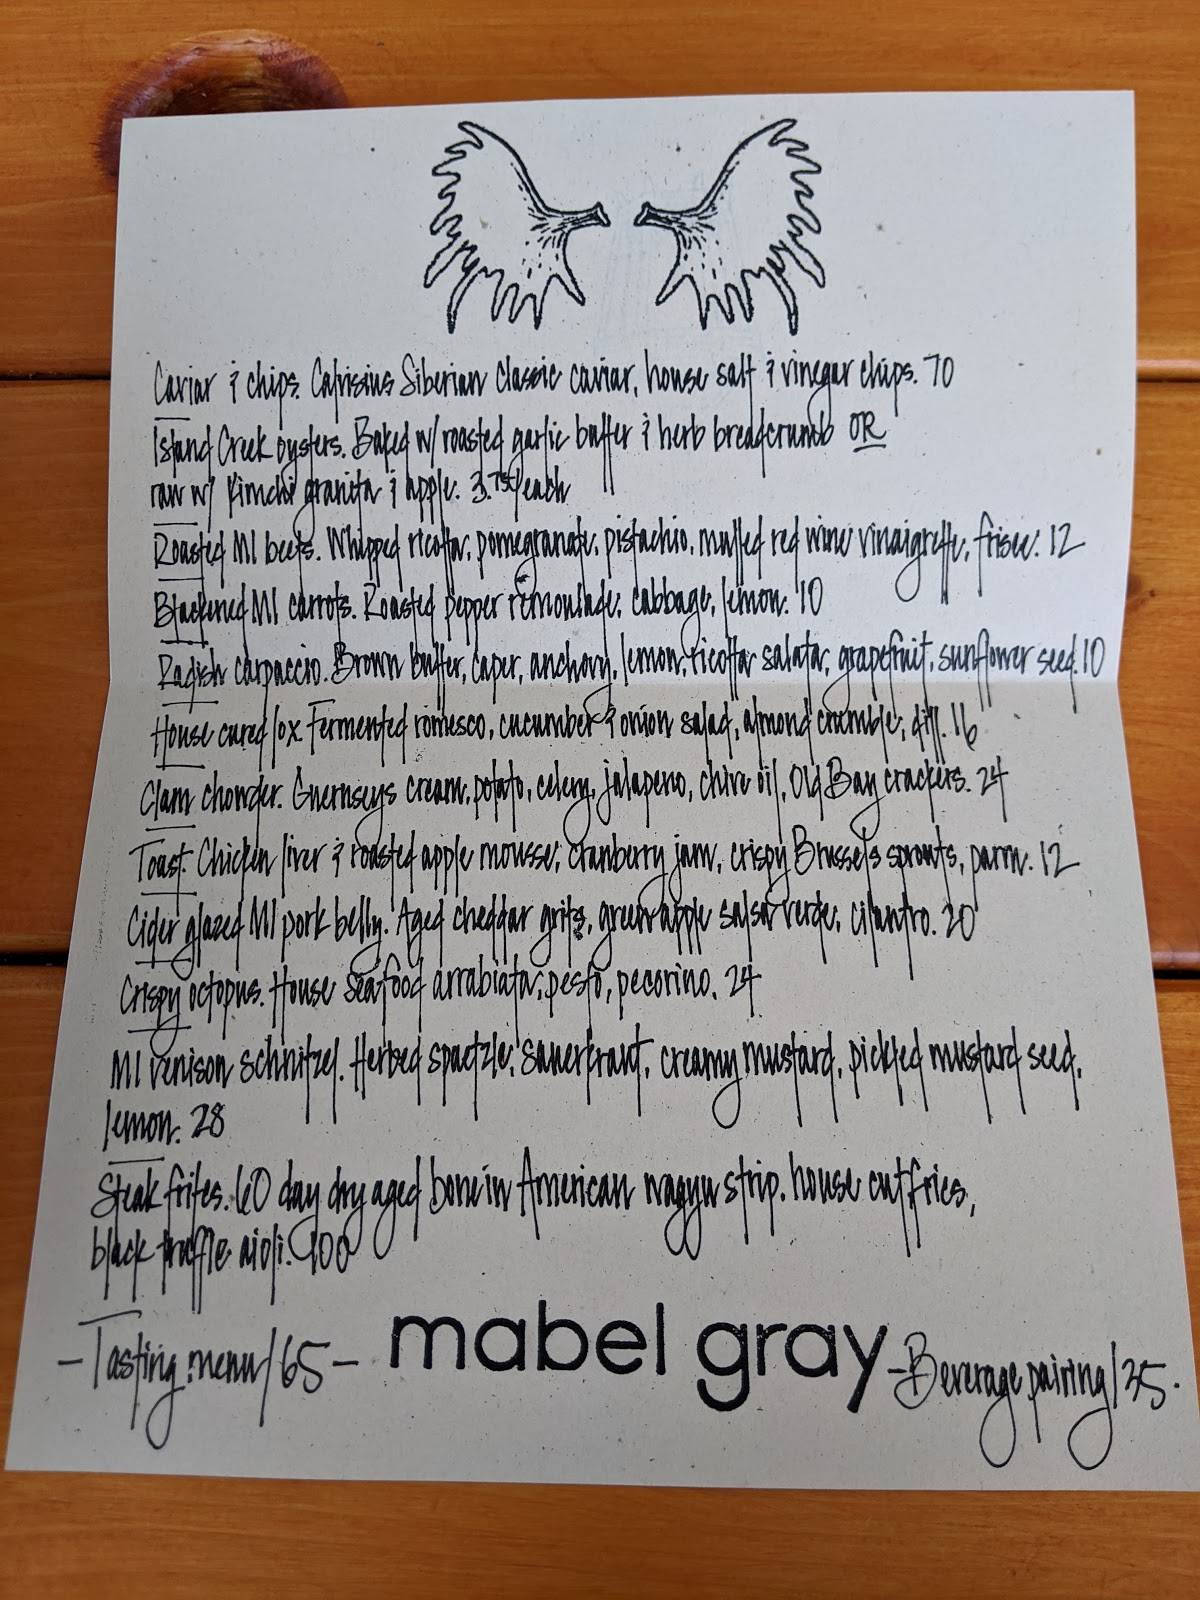 Caviar & chips. Calvisius Siberian Classic caviar, house salt & vinegar chips. 70
Island Creek oysters. Baked w/ roasted garlic butter & herb breadcrumb OR
raw w/ kimchi granita & apple. 3.75/each
Roasted MI beets. Whipped ricotta, pomegranate, pistachio, mulled red wine vinaigrette, frisee. 12
Blackened MI carrots. Roasted pepper remoulade, cabbage, lemon. 10
Radish carpaccio. Brown butter, caper, anchovy, lemon, ricotta salata, grapefruit, sunflower seed. 10
House cured lox. Fermented romesco, cucumber & onion salad, almond crumble, dill. 16
Clam chowder. Guernseys cream, potato, celery, jalapeno, chive oil, Old Bay crackers. 24
Toast. Chicken liver & roasted apple mousse, cranberry jam, crispy Brussels sprouts, parm. 12
Cider glazed MI pork belly. Aged cheddar grits, green apple salsa verde, cilantro. 20
Crispy octopus. House seafood arrabiata, pesto, pecorino. 24
MI venison schnitzel. Herbed spaetzle, sauerkraut, creamy mustard, pickled mustard seed,
lemon. 28
Steak frites. 60 day dry aged bone in American wagyu strip, house cut fries,
black truffle aioli. 100
-Tasting menu/65- mabel gray -Beverage pairing/35.